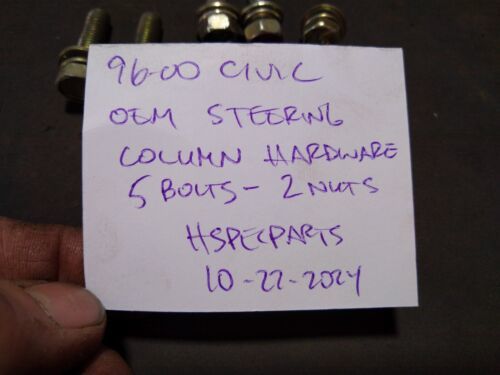 96-00 CIVIC
OEM STEERING
COLUMN HARDWARE
5 BOLTS - 2 NUTS
HSPECPARTS
10-22-2024